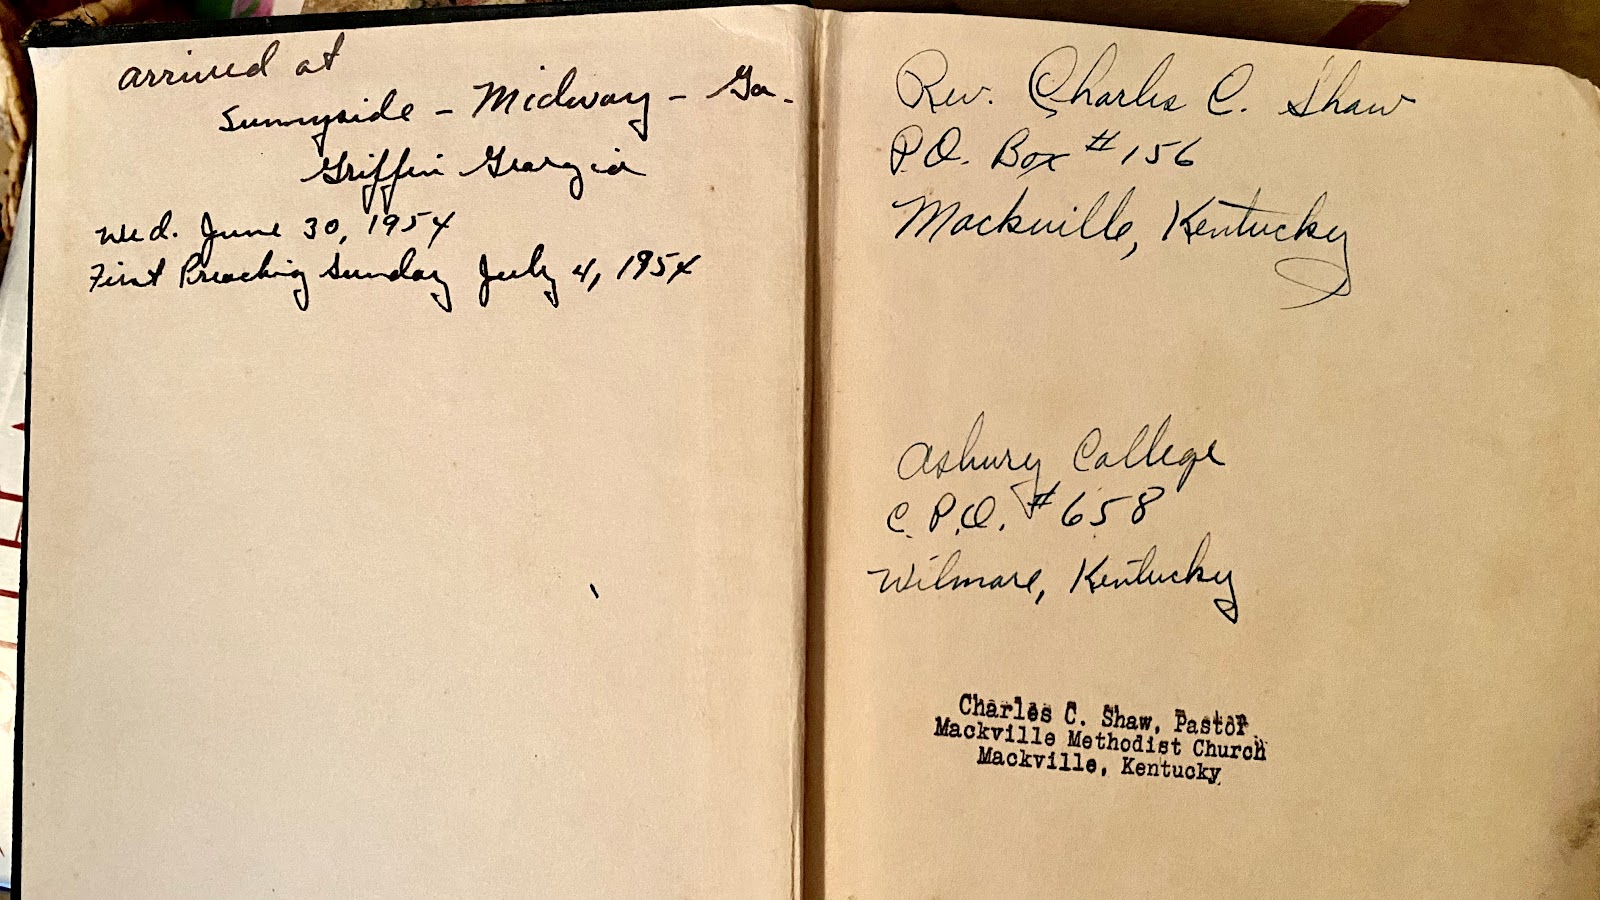 arrived at
Sunnyside - Midway - Ga.
Griffin Georgia
Wed. June 30, 1954
First Preaching Sunday July 4, 1954
Rev. Charles C. Shaw
P.O. Box #156
Mackville, Kentucky
Asbury College
C.P.O. #658
Wilmore, Kentucky
Charles C. Shaw, Pastor
Mackville Methodist Church
Mackville, Kentucky